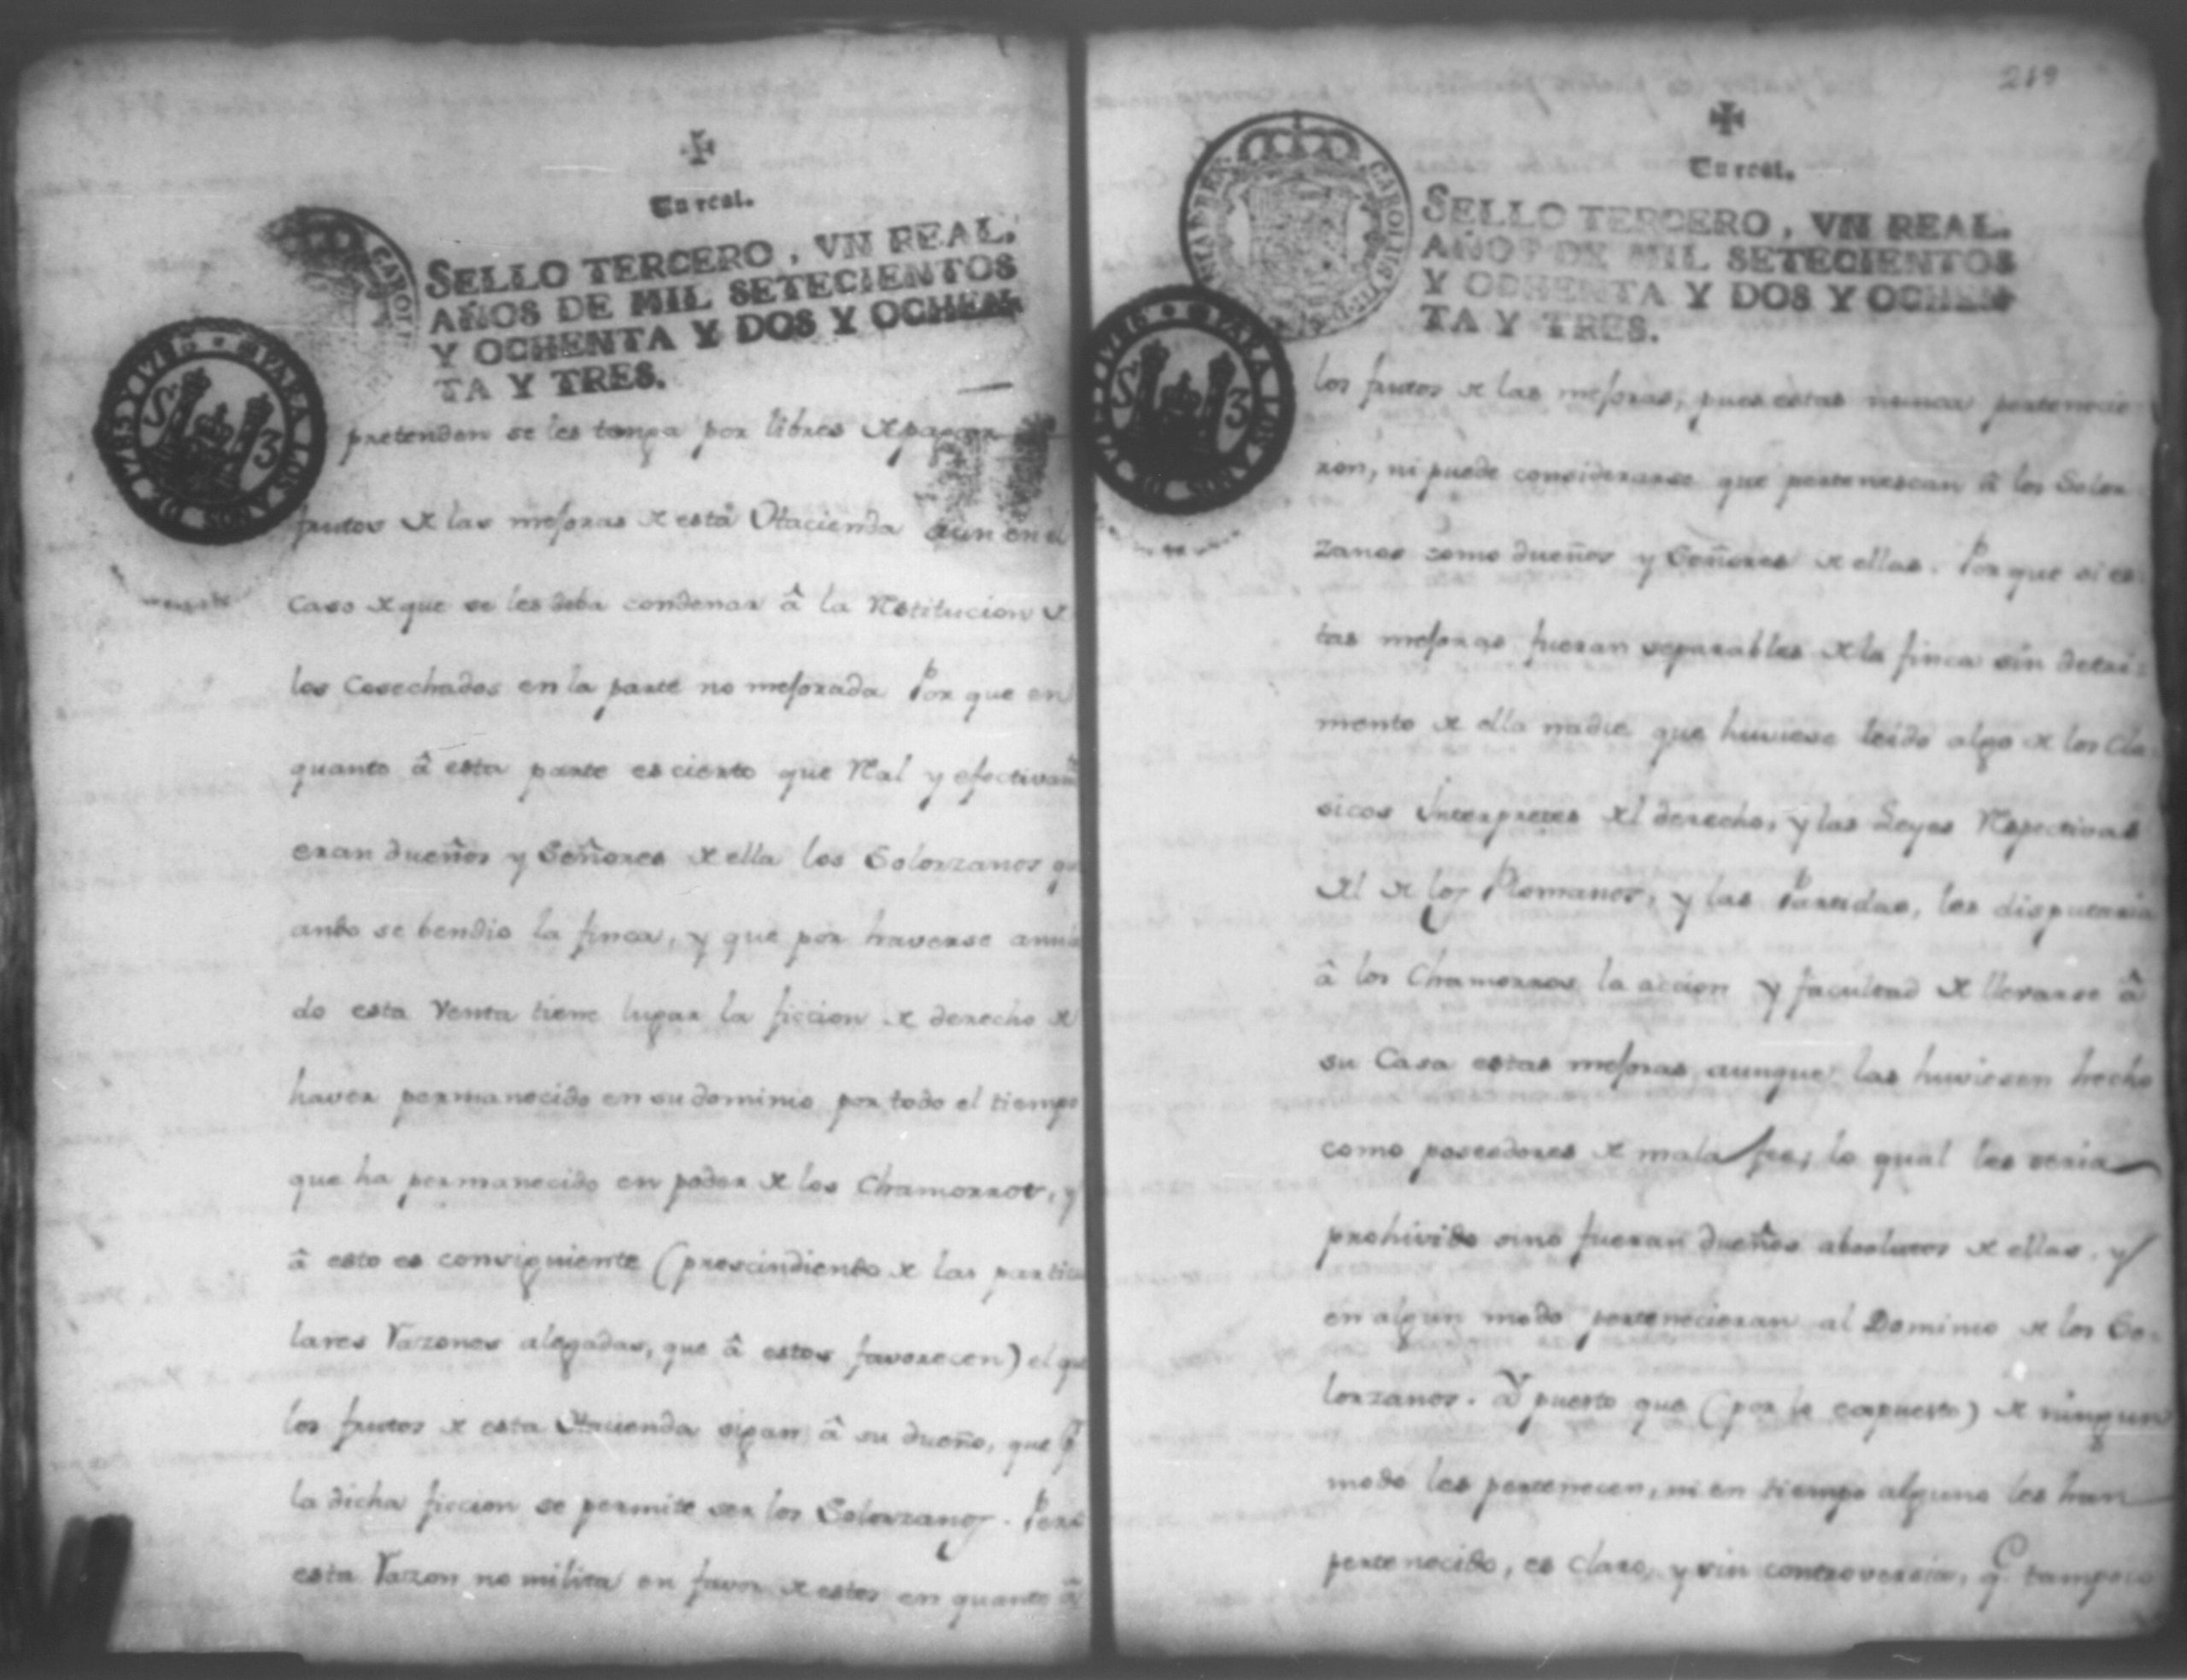 Un real.
SELLO TERCERO, VN REAL.
AÑOS DE MIL SETECIENTOS
Y OCHENTA Y DOS Y OCHEN-
TA Y TRES.
CAROLU
PARA LOS AÑOS DE 1785 Y 1786
S 3
pretenden se les tenga por libres de pagar
frutos de las mejoras de esta Hacienda aun en el
caso de que se les deba condenar â la Restitucion de
los Cosechados en la parte no mejorada Por que en
quanto â esta parte es cierto que Real y efectivamte
eran dueños y Señores de ella los Solorzanos qu
ando se bendio la finca, y que por haverse anula
do esta Venta tiene lugar la ficcion de derecho de
haver permanecido en su dominio por todo el tiempo
que ha permanecido en poder de los Chamorros, y
â esto es consiguiente (prescindiendo de las particu
lares razones alegadas, que â estos favorecen) el que
los frutos de esta Hacienda sigan â su dueño, que pr
la dicha ficcion se permite ser los Solorzanos. Pero
esta razon no milita en favor de estos en quanto â
219
Un real.
SELLO TERCERO, VN REAL.
AÑOS DE MIL SETECIENTOS
Y OCHENTA Y DOS Y OCHEN-
TA Y TRES.
CAROLUS III D G HISPANIAR REX
PARA LOS AÑOS DE 1785 Y 1786
S 3
los frutos de las mejoras, pues estas nunca pertenecie
ron, ni puede considerarse que pertenescan â los Solor
zanos como dueños y Señores de ellas. Por que si es-
tas mejoras fueran separables de la finca sin detri-
mento de ella nadie que huviese leido algo de los Cla
sicos Interpretes del derecho, y las Leyes Respectivas
del de los Romanos, y las Partidas, les disputaria
â los Chamorros la accion y facultad de llevarse â
su Casa estas mejoras aunque las huviesen hecho
como poseedores de mala fee; lo qual les seria
prohivido sino fueran dueños absolutos de ellas, y
en algun modo pertenecieran al Dominio de los So-
lorzanos. Y puesto que (por lo expuesto) de ningun
modo les pertenecen, ni en tiempo alguno les han
pertenecido, es claro, y sin controversia, qe tampoco